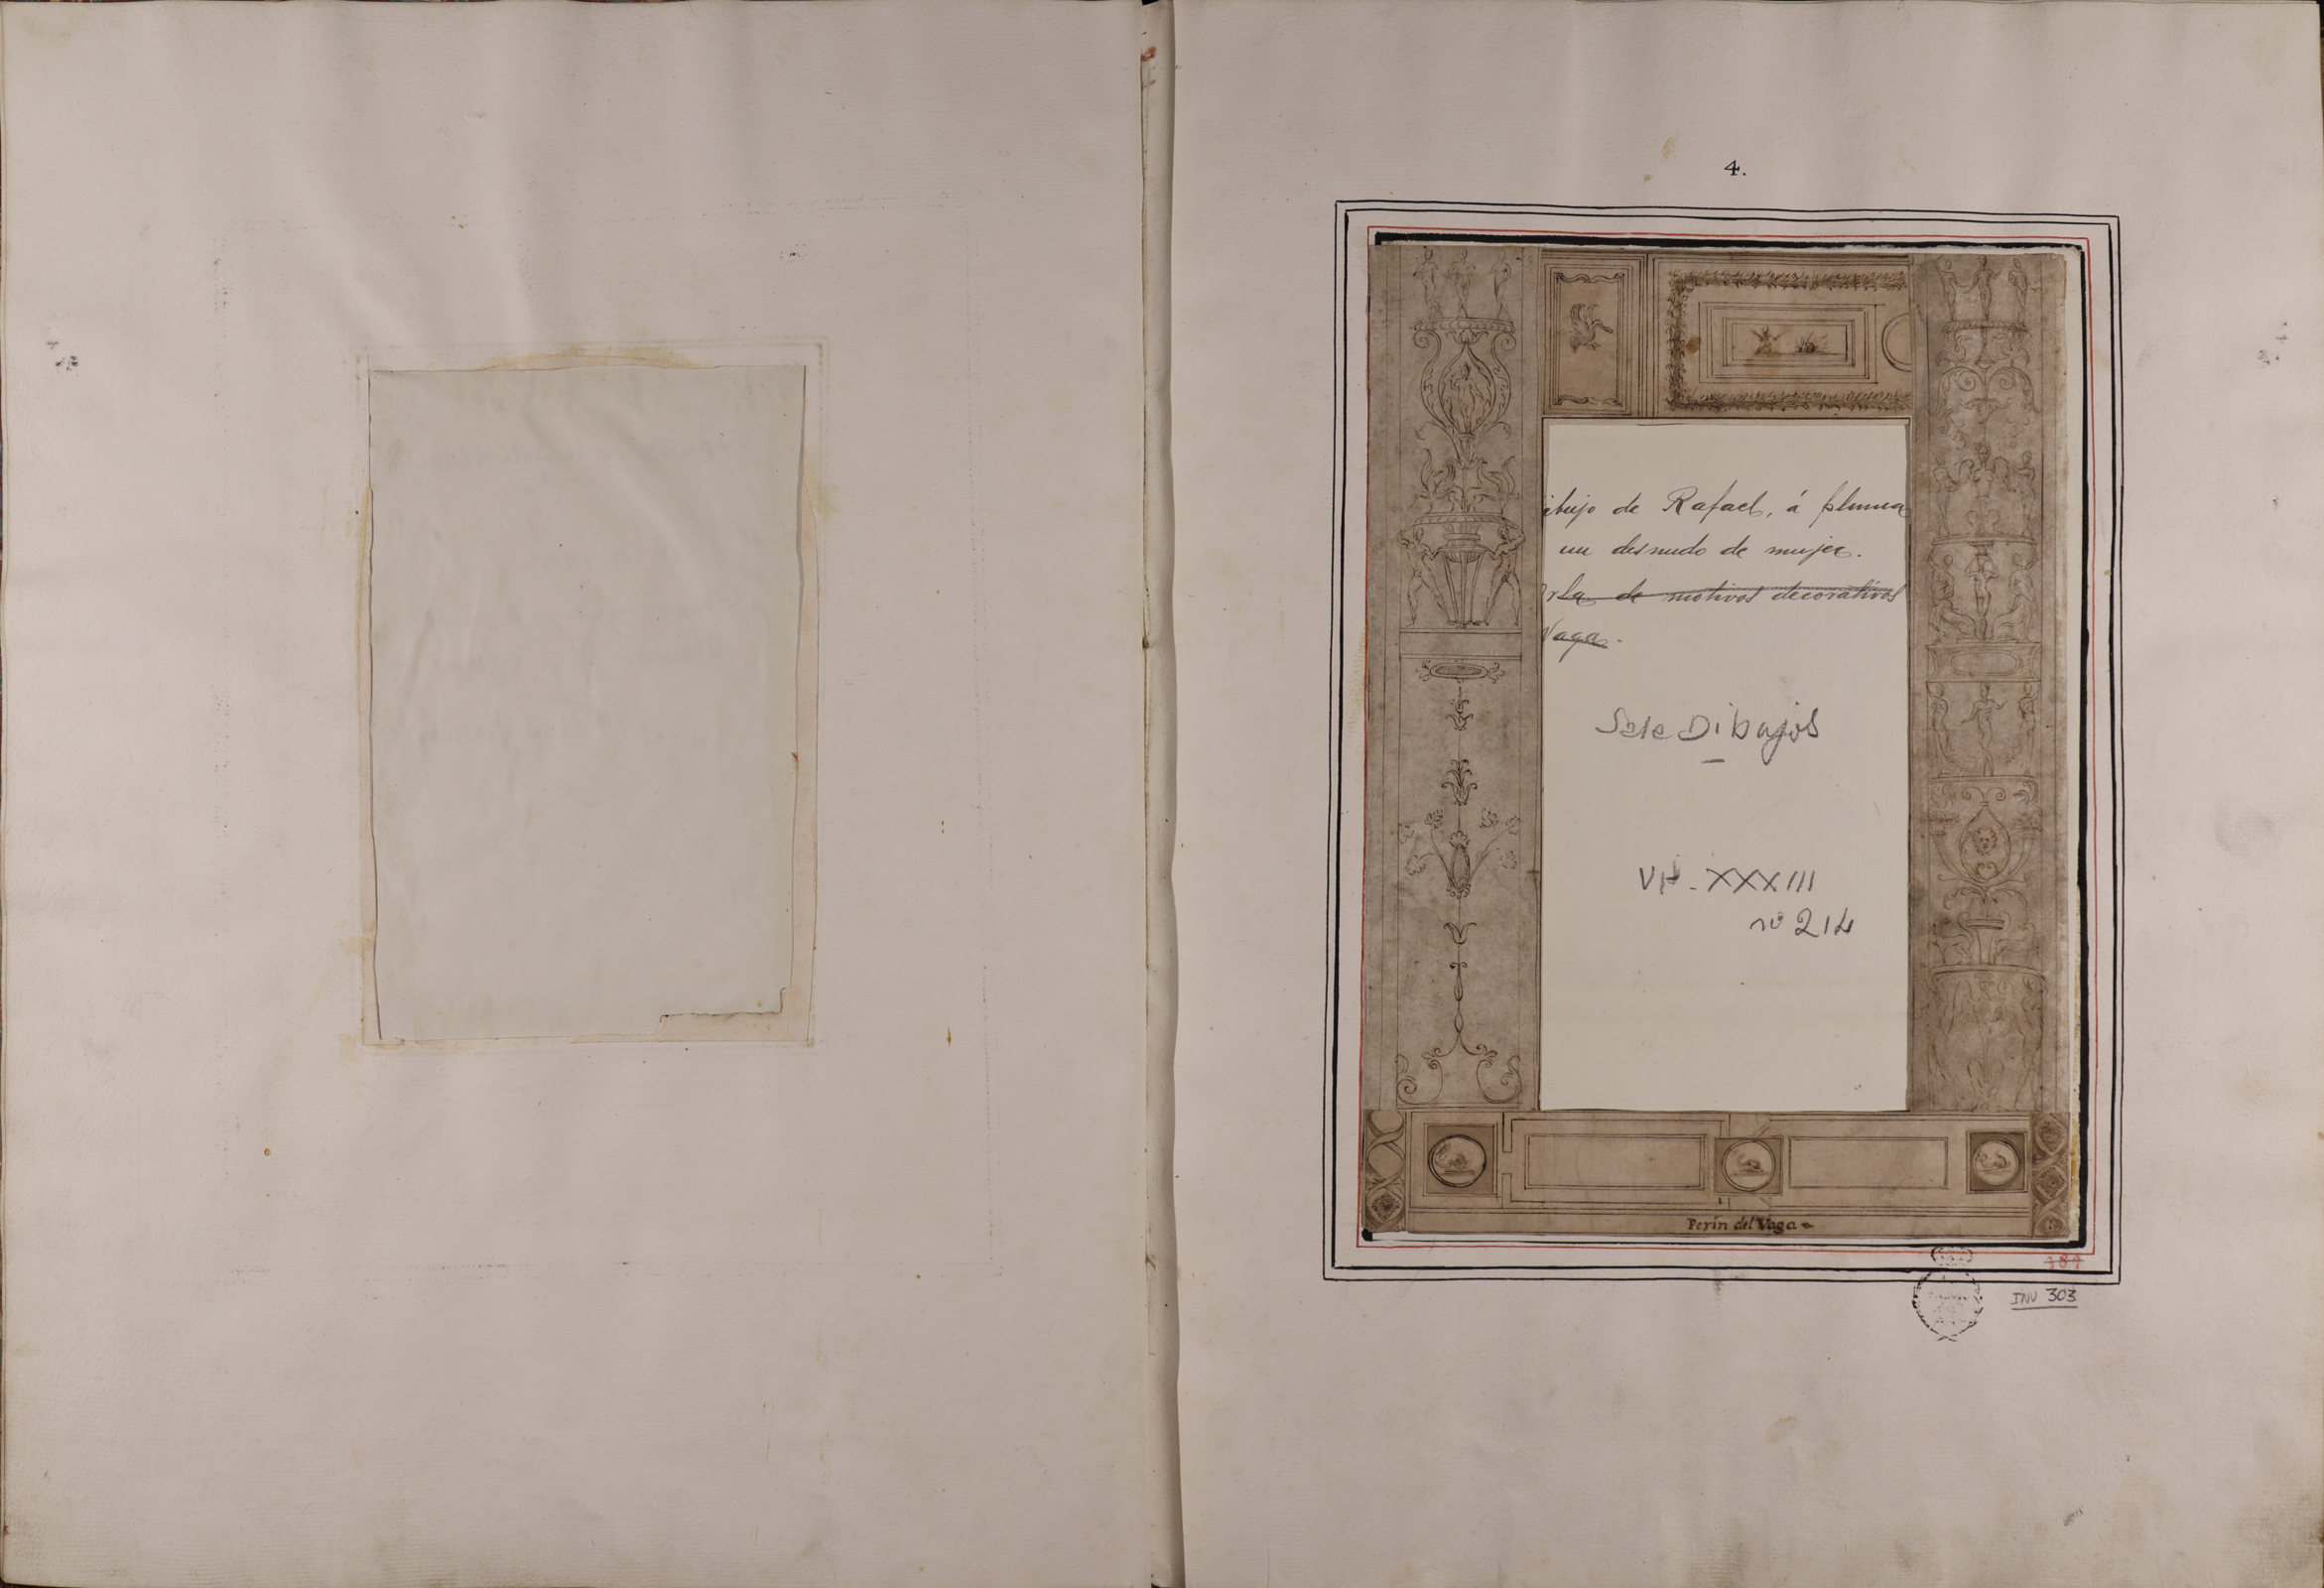 4.
ibujo de Rafael, á pluma
un desnudo de mujer.
rla de motivos decorativos
Vaga.
Sala Dibujos
VH-XXXIII
nº 214
Perín del Vaga
INV 303